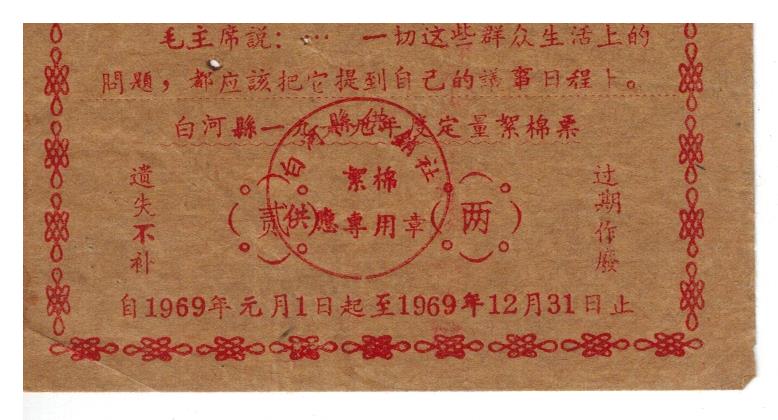 毛主席説：… 一切这些群众生活上的
問題，都应該把它提到自己的議事日程上。
白河縣一九六九年度定量絮棉票
白河縣供銷社
絮棉
供應專用章
遺失不补
贰两
过期作廢
自1969年元月1日起至1969年12月31日止